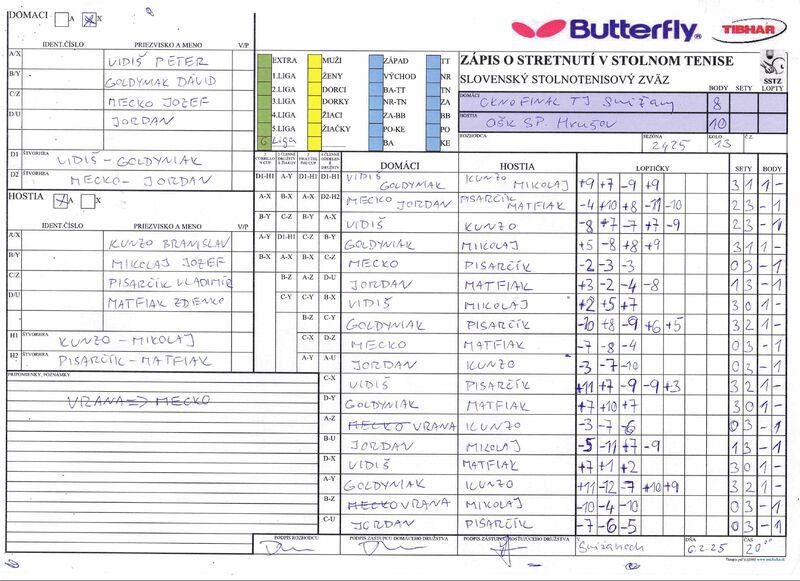 DOMÁCI A X
Butterfly
TIBHAR
IDENT.ČÍSLO PRIEZVISKO A MENO V/P
A/X VIDIŠ PETER
B/Y GOLDYNIAK DÁVID
C/Z MECKO JOZEF
D/U JORDAN
D1 ŠTVORHRA VIDIŠ - GOLDYNIAK
D2 ŠTVORHRA MECKO - JORDAN
HOSTIA A X
IDENT.ČÍSLO PRIEZVISKO A MENO V/P
A/X KUNZO BRANISLAV
B/Y MIKOLAJ JOZEF
C/Z PISARČÍK VLADIMÍR
D/U MATFIAK ZDENKO
H1 ŠTVORHRA KUNZO - MIKOLAJ
H2 ŠTVORHRA PISARČÍK - MATFIAK
PRIPOMIENKY, POZNÁMKY
VRANA => MECKO
EXTRA MUŽI ZÁPAD TT
1.LIGA ŽENY VÝCHOD NR
2.LIGA DORCI BA-TT TN
3.LIGA DORKY NR-TN ZA
4.LIGA ŽIACI ZA-BB BB
5.LIGA ŽIAČKY PO-KE PO
6 Liga BA KE
ZÁPIS O STRETNUTÍ V STOLNOM TENISE
SLOVENSKÝ STOLNOTENISOVÝ ZVÄZ
SSTZ
BODY SETY LOPTY
DOMÁCI OKNOFINAL TJ Smižany 8
HOSTIA OŠK SP. Hrušov 10
ROZHODCA SEZÓNA 24/25 KOLO 13
DOMÁCI HOSTIA LOPTIČKY SETY BODY
D1-H1 A-Y D1-H1 D1-H1 VIDIŠ GOLDYNIAK KUNZO MIKOLAJ +9 +7 -9 +9 3 1 1 -
A-X B-X A-X D2-H2 MECKO JORDAN PISARČÍK MATFIAK -4 +10 +8 -11 -10 2 3 - 1
B-Y C-Z B-Y A-X VIDIŠ KUNZO -8 +7 -7 +7 -9 2 3 - 1
A-Y D1-H1 C-Z B-Y GOLDYNIAK MIKOLAJ +5 -8 +8 +9 3 1 1 -
B-X A-X B-X C-Z MECKO PISARČÍK -2 -3 -3 0 3 - 1
B-Z A-Z D-U JORDAN MATFIAK +3 -2 -4 -8 1 3 - 1
C-Y C-Y B-X VIDIŠ MIKOLAJ +2 +5 +7 3 0 1 -
B-Z C-Y GOLDYNIAK PISARČÍK -10 +8 -9 +6 +5 3 2 1 -
C-X D-Z MECKO MATFIAK -7 -8 -4 0 3 - 1
A-Y A-U JORDAN KUNZO -3 -7 -10 0 3 - 1
C-X VIDIŠ PISARČÍK +11 +7 -9 -9 +3 3 2 1 -
D-Y GOLDYNIAK MATFIAK +7 +10 +7 3 0 1 -
A-Z MECKO VRANA KUNZO -3 -7 -6 0 3 - 1
B-U JORDAN MIKOLAJ -5 -11 +7 -9 1 3 - 1
D-X VIDIŠ MATFIAK +7 +1 +2 3 0 1 -
A-Y GOLDYNIAK KUNZO +11 -12 -7 +10 +9 3 2 1 -
B-Z MECKO VRANA MIKOLAJ -10 -4 -10 0 3 - 1
C-U JORDAN PISARČÍK -7 -6 -5 0 3 - 1
PODPIS ROZHODCU PODPIS ZÁSTUPCU DOMÁCEHO DRUŽSTVA PODPIS ZÁSTUPCU HOSŤUJÚCEHO DRUŽSTVA V Smižanoch DŇA 6.2.25 ČAS 20